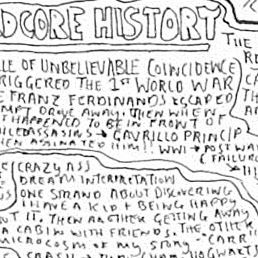 DCORE HISTORY
LE OF UNBELIEVABLE COINCIDENCE
RIGGERED THE 1ST WORLD WAR
FRANZ FERDINANDS ESCAPED
EMPT DROVE AWAY. THEN WHEN
HAPPENED TO BE IN FRONT OF
ILED ASSASINS → GAVRILLO PRINCIP
HEN ASSINATED HIM!! WWI → POST WAR
(FAILURE
THE
RE
CRAZY ASS
DREAM INTERPRETATION
ONE STRAND ABOUT DISCOVERING
I HAVE A KID & BEING HAPPY
UT IT. THEN ANOTHER GETTING AWAY
A CABIN WITH FRIENDS. THE OTHER
MICROCOSM OF MY STORY
HOGWARTS